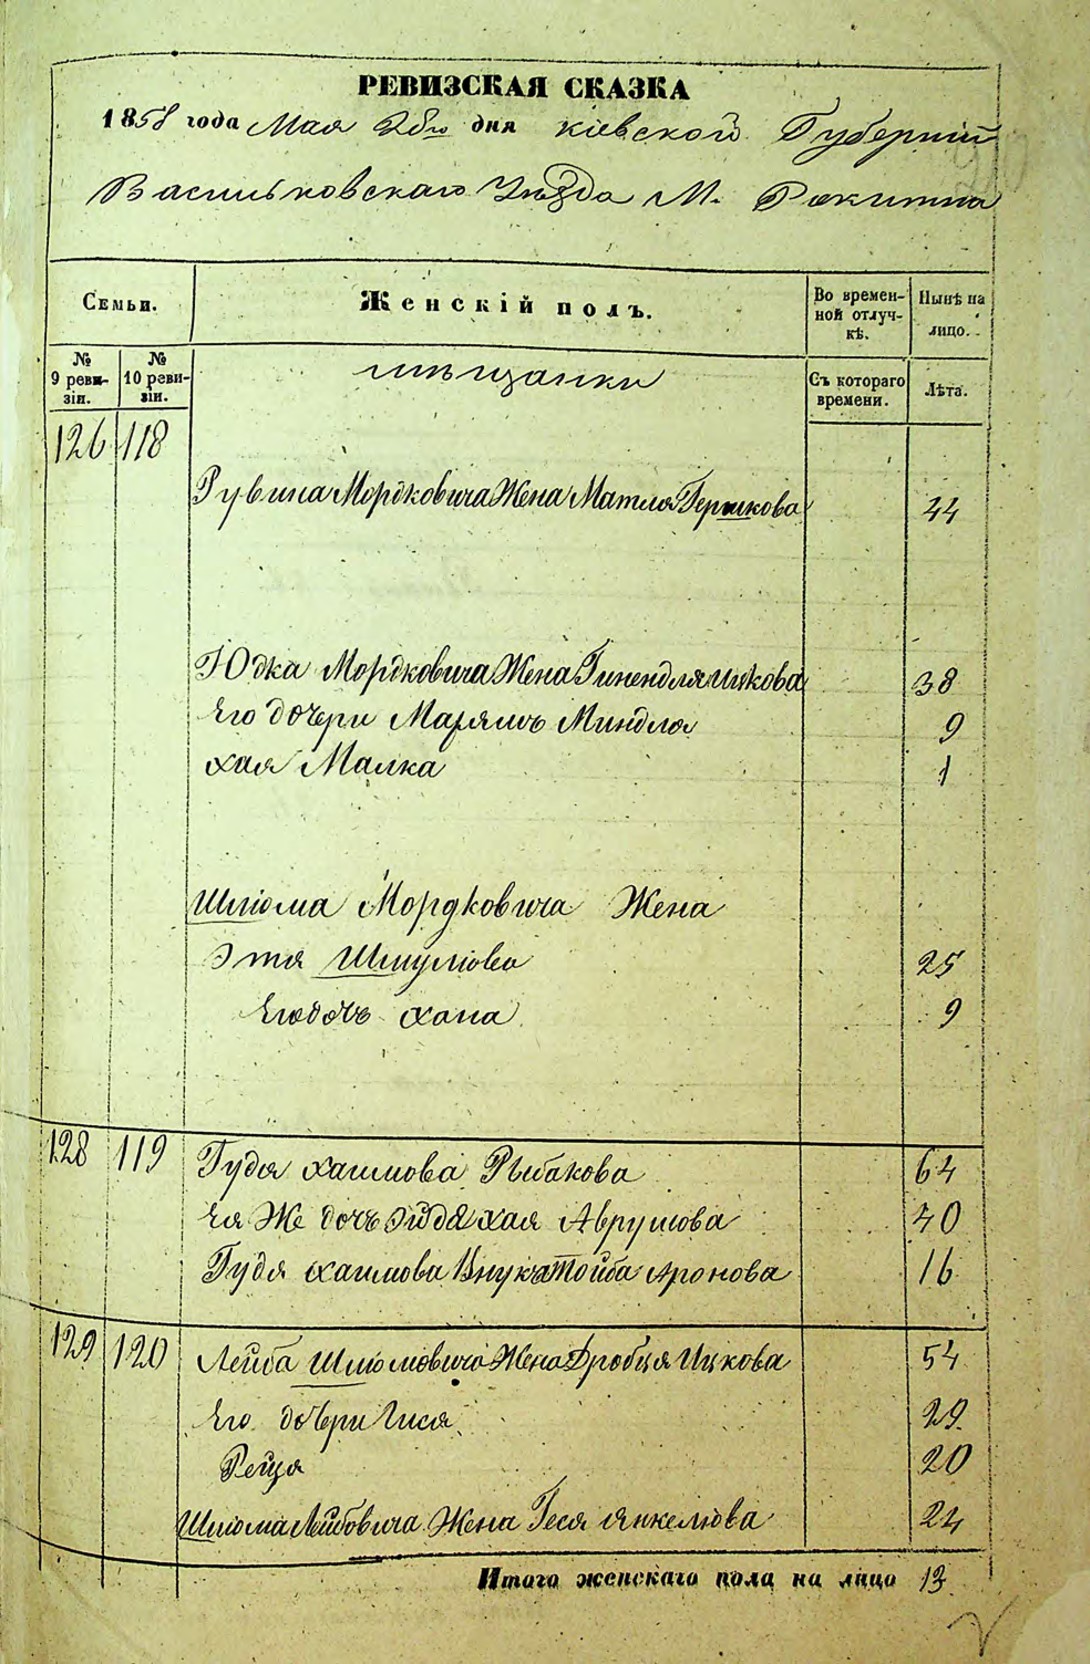 РЕВИЗСКАЯ СКАЗКА
1858 года Мая 28го дня Кіевской Губерніи
Васильковскаго Уѣзда М. Рокитна
Семьи. Женскій полъ. Во временной отлучкѣ. Нынѣ на лицо.
№ 9 ревизіи. № 10 ревизіи. мѣщанки Съ котораго времени. Лѣта.
126 118
Рувина Мордковича Жена Матля Гершкова 44
Юдка Мордковича Жена Гинендля Ицкова 38
Его дочери Марямъ Миндля 9
хая Малка 1
Шліома Мордковича Жена
Этя Шмуліова 25
Егодочь хана 9
128 119 Гудя хаимова Рыбакова 64
Ея Же дочь Эйдя хая Аврумова 40
Гудя хаимова Внука Тойба Аронова 16
129 120 Лейба Шліомовича Жена Дробця Ицкова 54
Его дочери Гися 29
Рейзя 20
Шліома Лейбовича Жена Геся Янкеліова 24
Итого женскаго пола на лицо 13